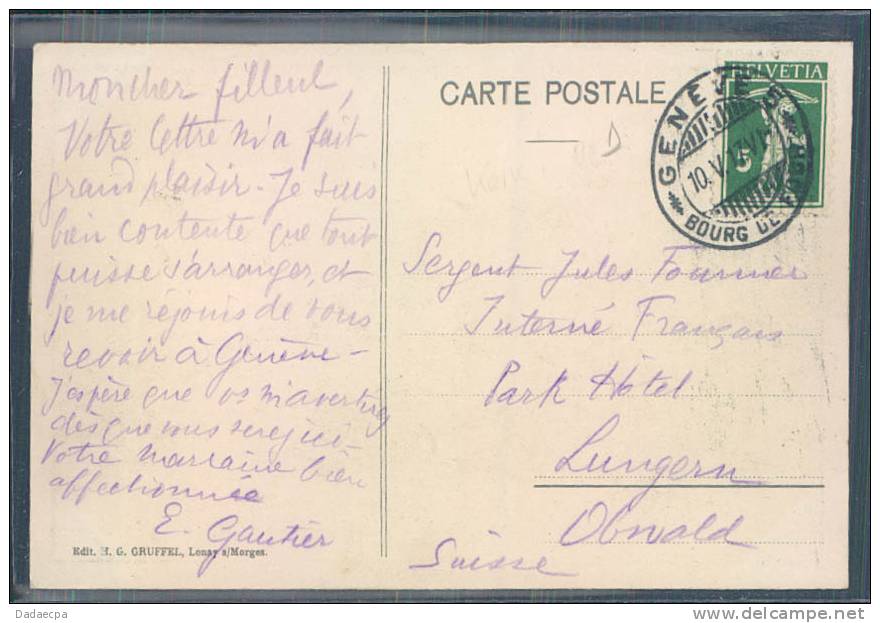 Mon cher filleul,
Votre lettre m'a fait
grand plaisir. Je suis
bien contente que tout
puisse s'arranger, et
je me réjouis de vous
revoir à Genève -
J'espère que vs m'avertirez
dès que vous serez ici -
Votre marraine bien
affectionnée
E. Gautier
Edit. H. G. GRUFFEL, Lonay s/Morges.
CARTE POSTALE
HELVETIA
5
GENÈVE
10.V.17.VI
BOURG DE
Sergent Jules Fournier
Interné Français
Park Hôtel
Lungern
Obwald
Suisse
Dadaecpa
www.delcampe.net